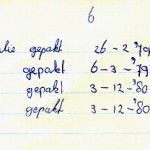 6
gepakt 26-2-'79
gepakt 6-3-'79
gepakt 3-12-'80
gepakt 3-12-'80